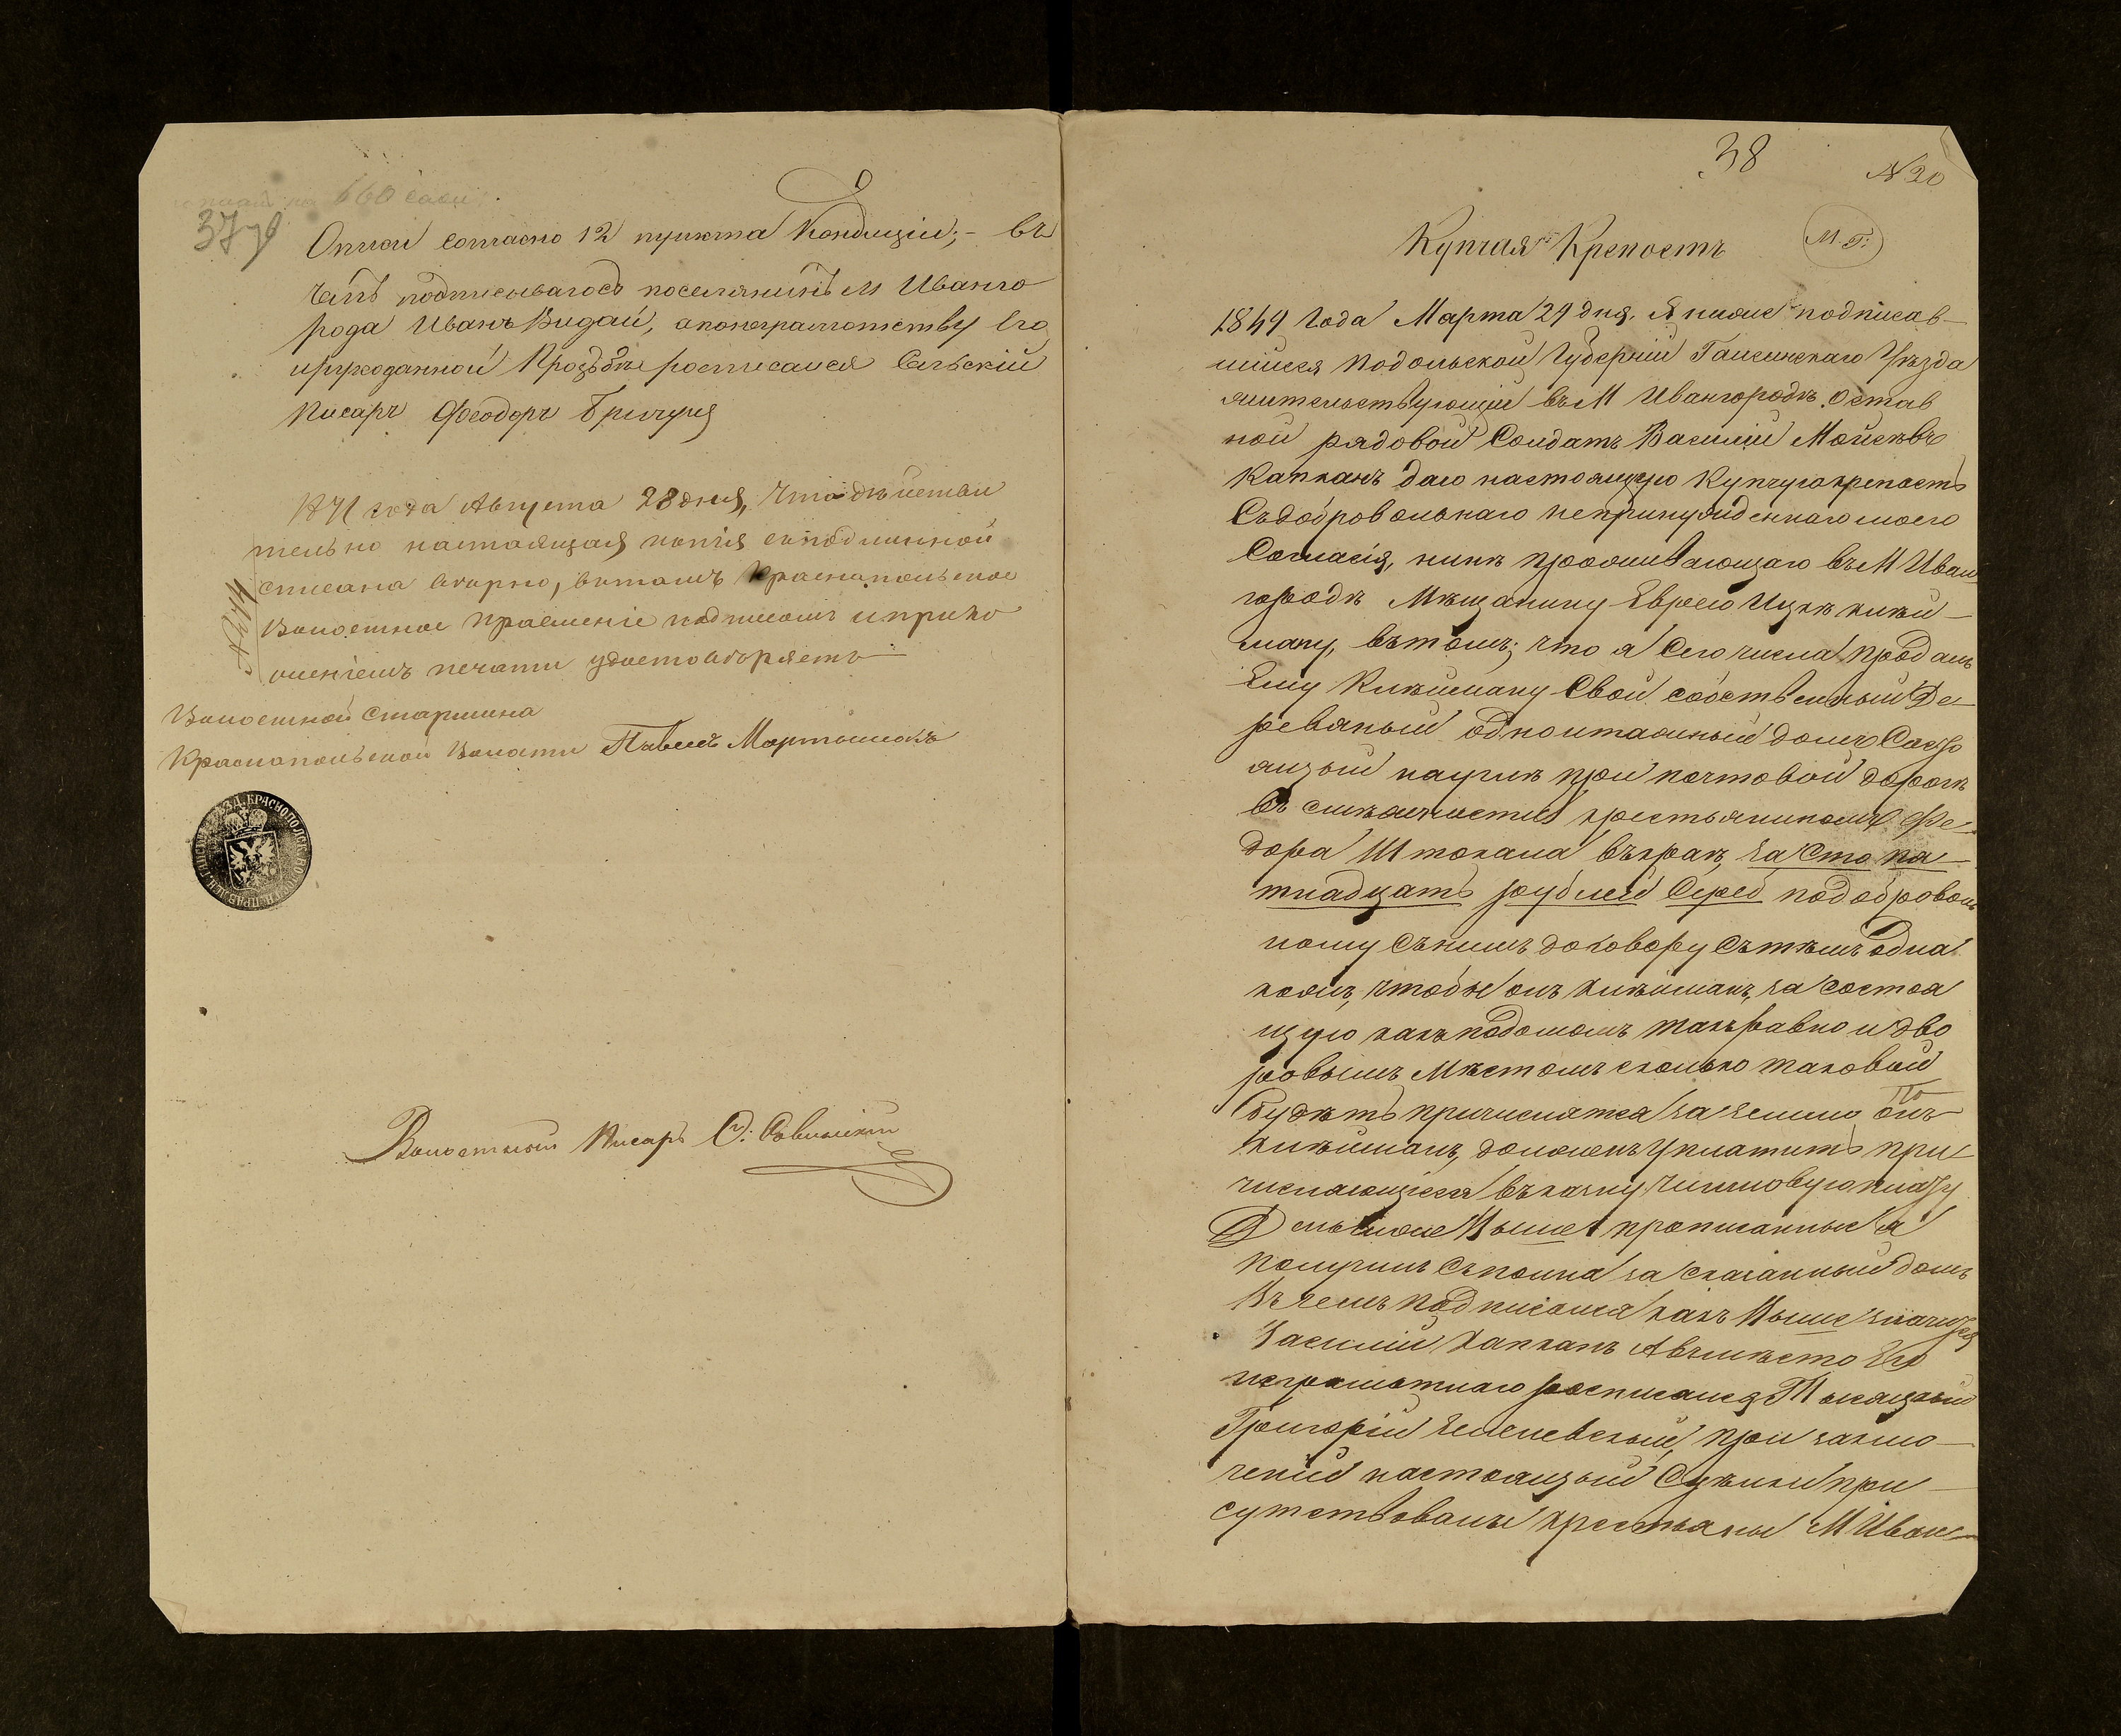 37 об
Описи согласно 12 пункта Кондиціи; – въ
чемъ подписываюсь поселянинъ М Иванго
рода Иванъ Видай, апонеграмотству Его
ируходанной Прозьбѣ росписался Сельскій
Писарь Феодоръ Бричуия
1871 года Августа 28 дня, Что дѣйстви
тельно настаящая копія сподлинной
списана вѣрно, втомъ Краснопольское
Волостное Правленіе подписомъ иприло
женіемъ печати удостовѣряетъ
Волостной Старшина
Краснопольской Волости Павелъ Мартынюкъ
Волостный Писарь
38
N 20
Купчая Крепость
М. П.
1849 Года Марта 29 дня. Я ниже подписав–
шійся Подольской Губерніи Гайсинскаго Уѣзда
жительствующій въ М Ивангородѣ Остав
ной рядовой Солдатъ Василій Мойсѣевъ
Капканъ даю настоящую Купчуюкрепость
Съдобровольнаго непринужденнаго моего
Согласія, нинѣ проживающаго въ М Иван
городѣ Мѣщанину Еврею Ицкѣ Клей–
ману, вътомъ; что я Сего числа продалъ
Ему Клейману Свой собственный Де–
ревяный одноитажный домъ Состо
ящый нацинѣ при почтовой дорогѣ
въ смежности крестьяниномъ Фе–
дора Штокала въкраѣ, за Сто пя–
тнадцать рублей Сереб подобровол
ному Снимъ доковору Стѣмъ одна
кожъ, чтобы онъ Клейманъ, за состоя
щую какъ подомомъ такъравно и дво
ровымъ Мѣстомъ сколько таковой
будетъ причислятся за землю То онъ
Клейманъ, долженъ Уплатить при
числающіеся въказну Чиншовую плату
Деньгиже Выше прописанные я
Получилъ Сполна за сказанный домъ
Вчемъ подписался какъ Выше значится
Василій Капканъ Авъмѣсто Его
неграмотнаго росписался Тысящный
Григорій при заклю–
ченіи настоящый Сдѣлки при–
сутствовалы крестьяны М Иван–